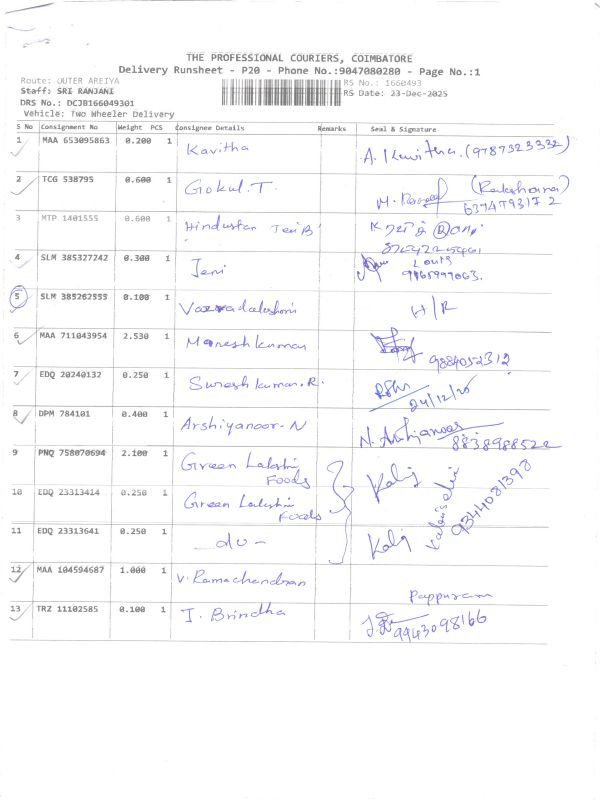 THE PROFESSIONAL COURIERS, COIMBATORE
Delivery Runsheet - P20 - Phone No.:9047080280 - Page No.:1
Route: OUTER AREIYA RS No.: 1660493
Staff: SRI RANJANI RS Date: 23-Dec-2025
DRS No.: DCJB166049301
Vehicle: Two Wheeler Delivery
S No Consignment No Weight PCS Consignee Details Remarks Seal & Signature
1 MAA 653095863 0.200 1 Kavitha A. Kavitha. (9787323332)
2 TCG 538795 0.600 1 Gokul. T. M. (Rakshana)
6374793172
3 MTP 1401555 0.600 1 Hindustan
4 SLM 385327242 0.300 1 Jeni
9965997063.
5 SLM 385262555 0.100 1 H/R
6 MAA 711043954 2.530 1 Manesh kumar
9884052312
7 EDQ 20240132 0.250 1 Suresh kumar. R.
24/12/25
8 DPM 784101 0.400 1 Arshiyanoor - N N.
8838988522
9 PNQ 758070694 2.100 1 Green Lakshmi Foods Kalaj
10 EDQ 23313414 0.250 1 Green Lakshmi Foods
9344081398
11 EDQ 23313641 0.250 1 - do - Kalaj
12 MAA 104594687 1.000 1 V. Ramachandran Pappuram
13 TRZ 11102585 0.100 1 I. Brindha
9943098166